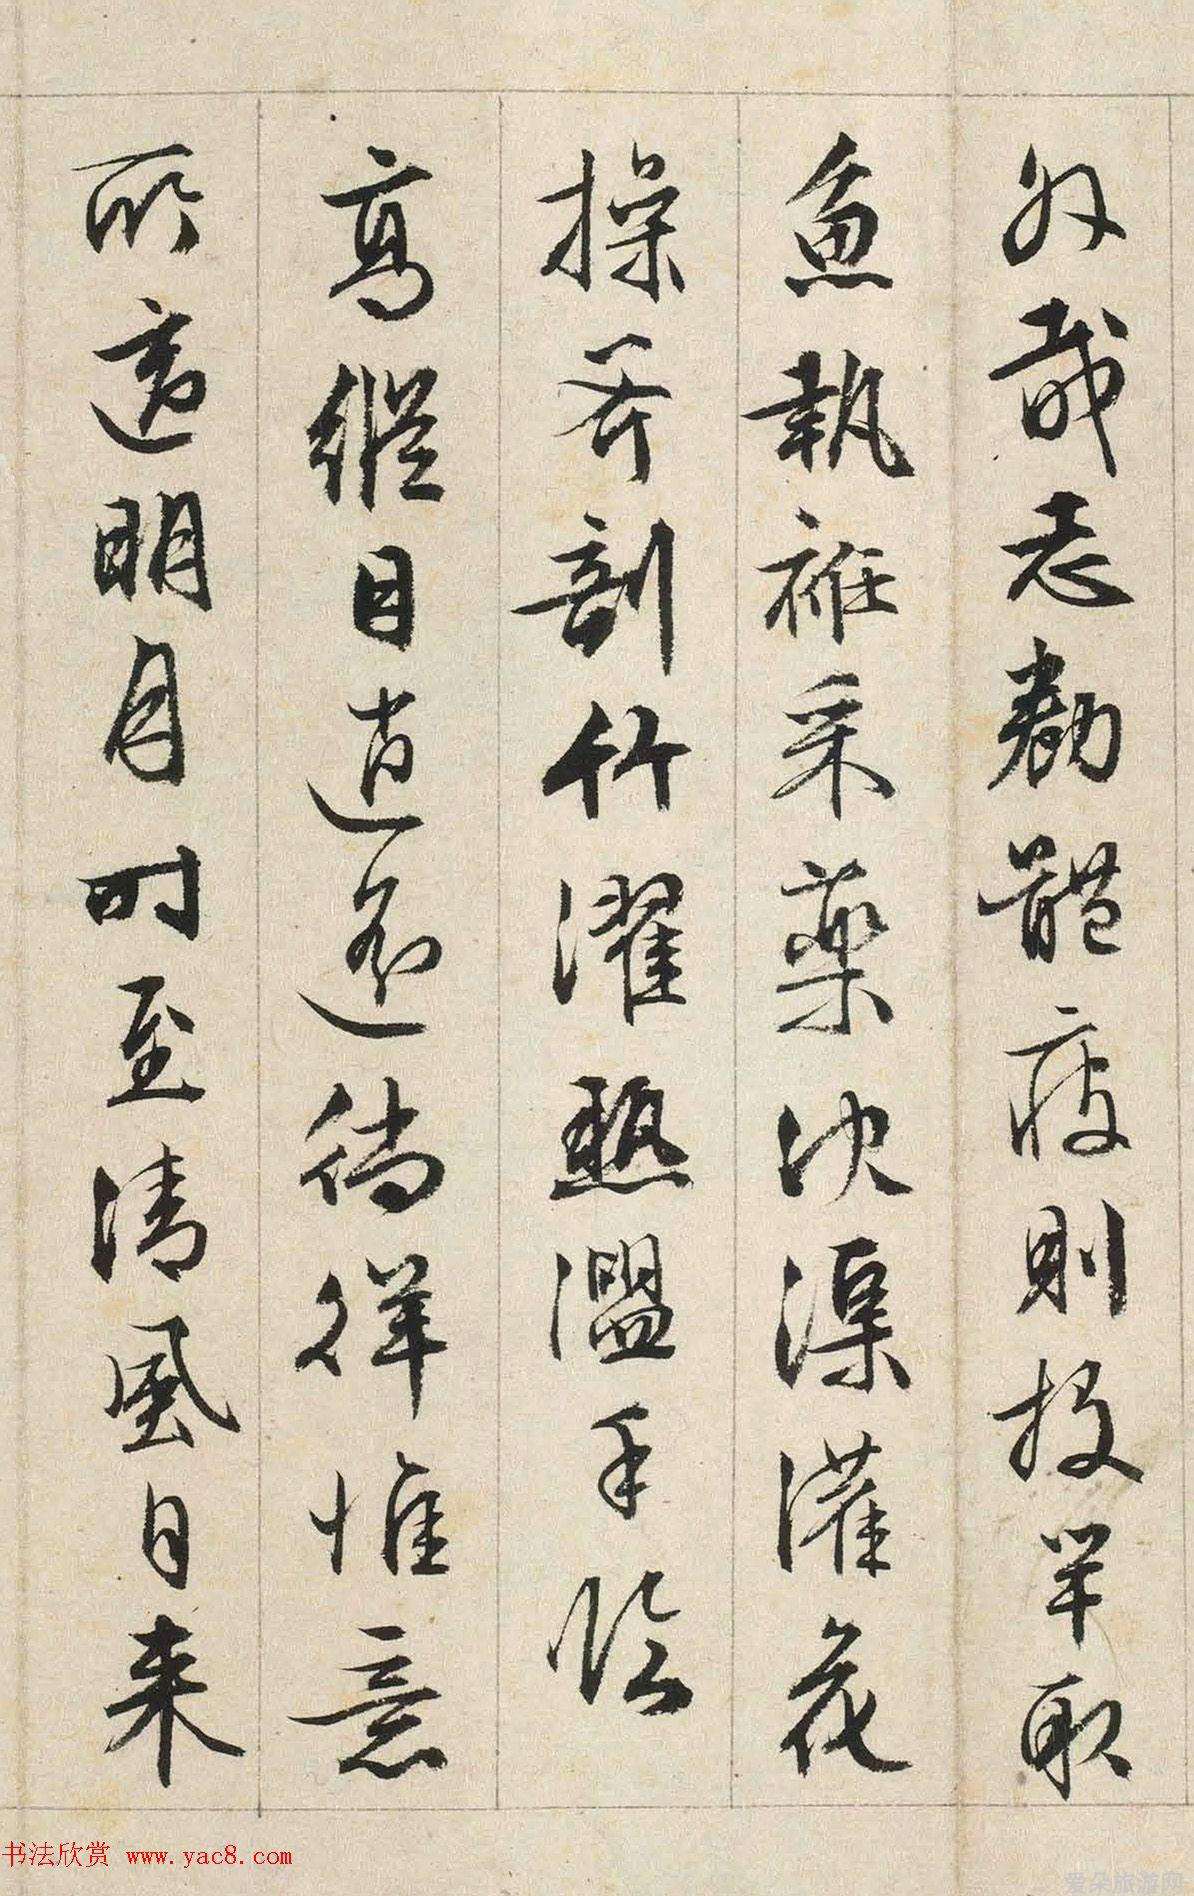 外哉志勌體疲則投竿取
魚執衽采藥決渠灌花
操斧剖竹濯熱盥手臨
高縱目逍遙徜徉惟意
所適明月时至清風自来
书法欣赏 www.yac8.com
爱朵旅游网